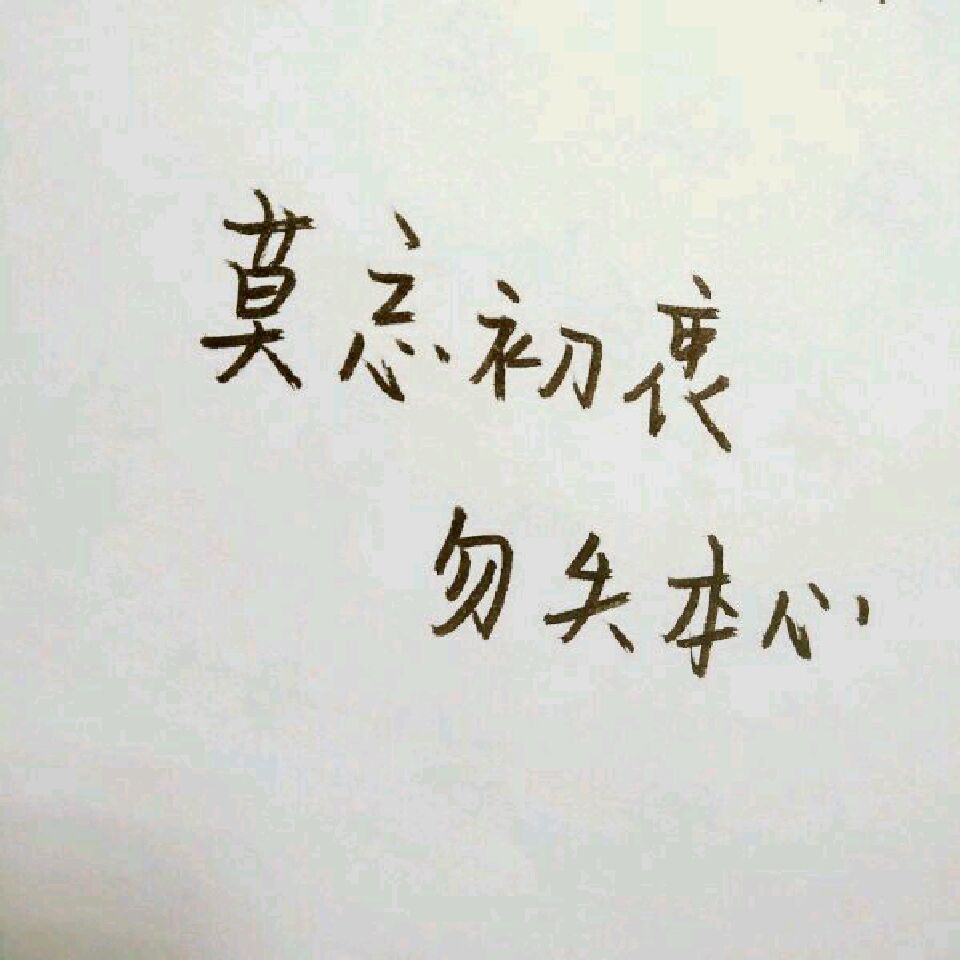 莫忘初衷
勿失本心